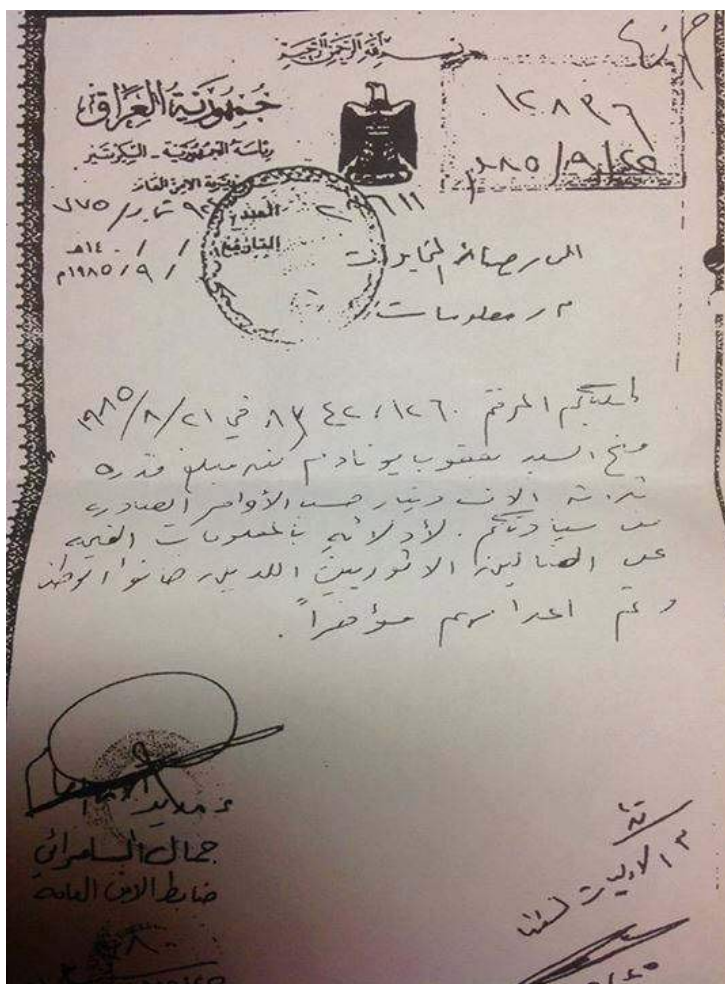 بسم الله الرحمن الرحيم
جمهورية العراق
رئاسة الجمهورية - السكرتير
مديرية الامن العامة
١٢٨٩٦
٩٨٥/٩/٢٥
العدد
التاريخ / / ١٤٠هـ
/ ٩ / ١٩٨٥م
الى رصافة المخابرات
م / معلومات
كتابكم المرقم ٤٢،١٢٦٠ في ١٩٨٥/٨/٢١
منح السيد يعقوب يونادم كنه مبلغ قدره
ثلاثة الاف دينار حسب الأوامر الصادره
من سيادتكم. لأدلائهِ بالمعلومات القيمه
عن الخائنين الاثوريين اللذين خانوا الوطن
وتم اعدامهم مؤخراً.
جمال السامرائي
ضابط الامن العامة